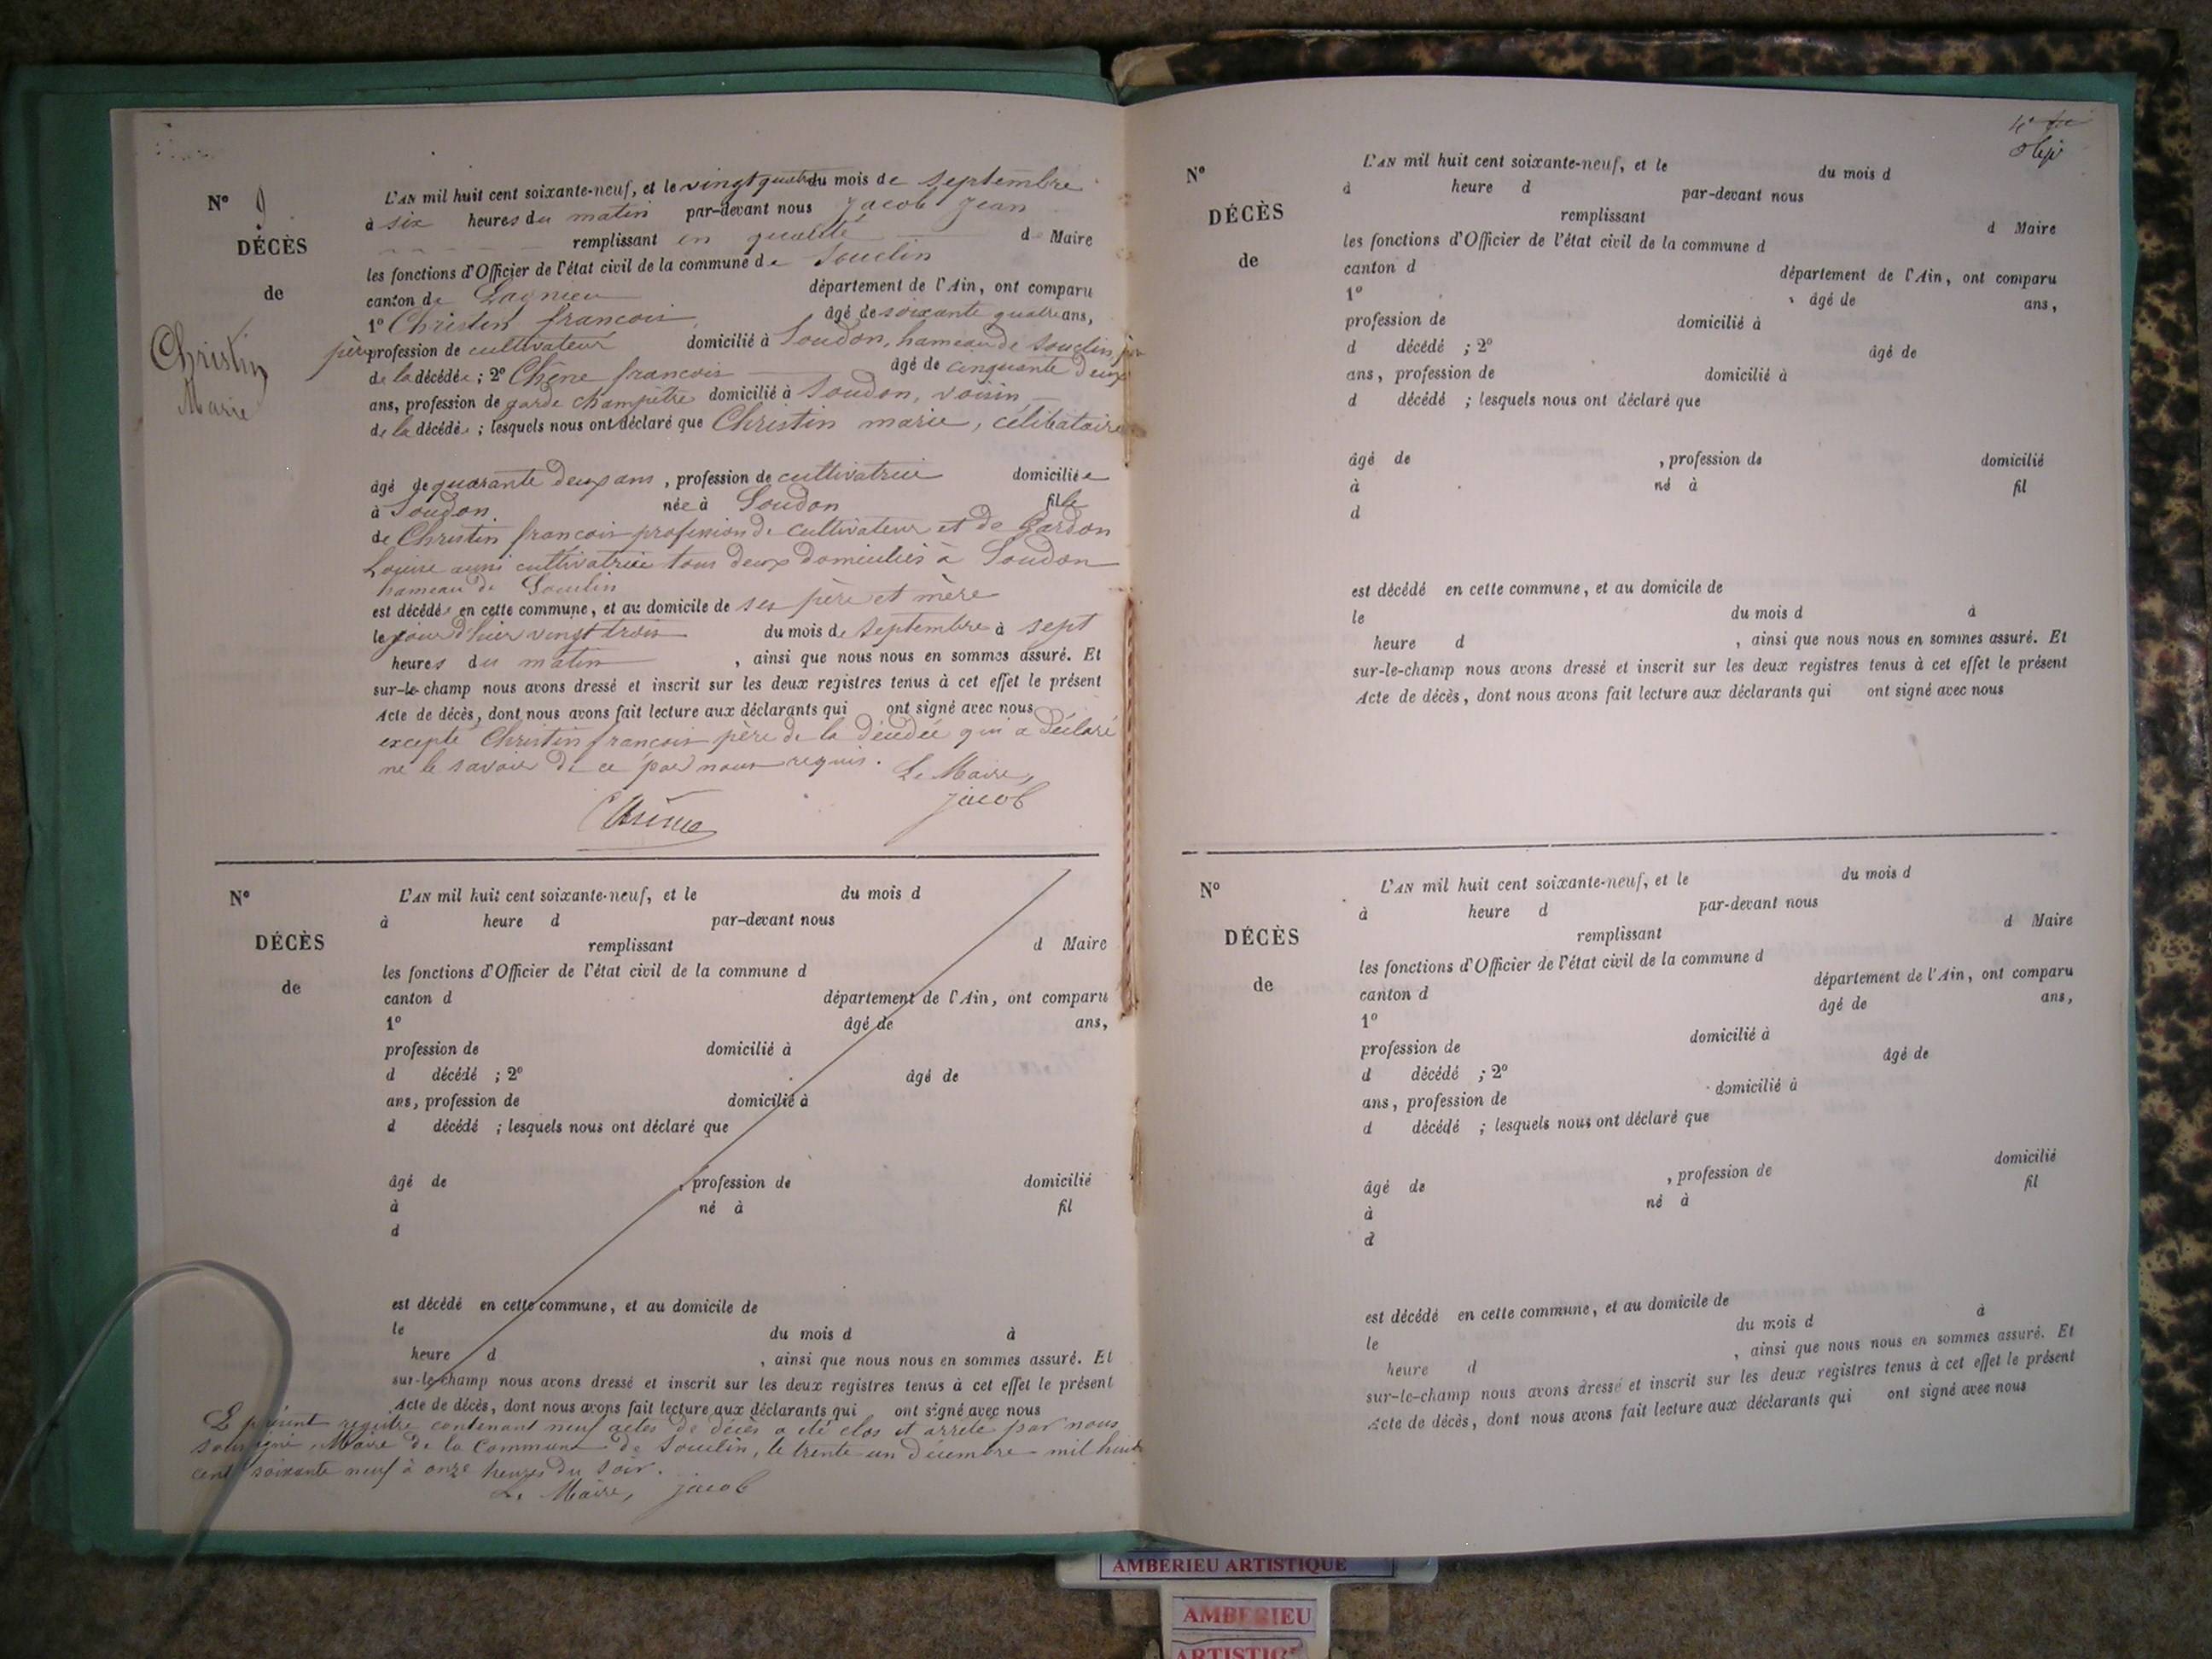 N° 9
DÉCÈS
de
Christin
Marie
L'AN mil huit cent soixante-neuf, et le vingt quatre du mois de Septembre
à six heures du matin par-devant nous Jacob Jean
remplissant en qualité de Maire
les fonctions d'Officier de l'état civil de la commune de Souclin
canton de Lagnieu département de l'Ain, ont comparu
1° Christin francois, âgé de soixante quatre ans,
profession de cultivateur domicilié à Soudon, hameau de Souclin, père
père de la décédée ; 2° Chêne francois âgé de cinquante deux
ans, profession de garde champêtre domicilié à Soudon, voisin
de la décédée ; lesquels nous ont déclaré que Christin marie, célibataire
âgé de quarante deux ans, profession de cultivatrice domiciliée
à Soudon née à Soudon fille
de Christin francois profession de cultivateur et de Gardon
Louise aussi cultivatrice tous deux domiciliés à Soudon
hameau de Souclin
est décédée en cette commune, et au domicile de ses père et mère
le jour d'hier vingt trois du mois de Septembre à sept
heures du matin , ainsi que nous nous en sommes assuré. Et
sur-le-champ nous avons dressé et inscrit sur les deux registres tenus à cet effet le présent
Acte de décès, dont nous avons fait lecture aux déclarants qui ont signé avec nous
excepté Christin francois père de la décédée qui a déclaré
ne le savoir de ce par nous requis. Le Maire,
Chêne jacob
N°
DÉCÈS
de
L'AN mil huit cent soixante-neuf, et le du mois d
à heure d par-devant nous
remplissant d Maire
les fonctions d'Officier de l'état civil de la commune d
canton d département de l'Ain, ont comparu
1° âgé de ans,
profession de domicilié à
d décédé ; 2° âgé de
ans, profession de domicilié à
d décédé ; lesquels nous ont déclaré que
âgé de , profession de domicilié
à né à fil
d
est décédé en cette commune, et au domicile de
le du mois d à
heure d , ainsi que nous nous en sommes assuré. Et
sur-le-champ nous avons dressé et inscrit sur les deux registres tenus à cet effet le présent
Acte de décès, dont nous avons fait lecture aux déclarants qui ont signé avec nous
Le présent registre contenant neuf actes de décès a été clos et arrêté par nous
soussigné, Maire de la Commune de Souclin, le trente un Décembre mil huit
cent soixante neuf à onze heures du soir.
Le Maire, jacob
N°
DÉCÈS
de
L'AN mil huit cent soixante-neuf, et le du mois d
à heure d par-devant nous
remplissant d Maire
les fonctions d'Officier de l'état civil de la commune d
canton d département de l'Ain, ont comparu
1° âgé de ans,
profession de domicilié à
d décédé ; 2° âgé de
ans, profession de domicilié à
d décédé ; lesquels nous ont déclaré que
âgé de , profession de domicilié
à né à fil
d
est décédé en cette commune, et au domicile de
le du mois d à
heure d , ainsi que nous nous en sommes assuré. Et
sur-le-champ nous avons dressé et inscrit sur les deux registres tenus à cet effet le présent
Acte de décès, dont nous avons fait lecture aux déclarants qui ont signé avec nous
N°
DÉCÈS
de
L'AN mil huit cent soixante-neuf, et le du mois d
à heure d par-devant nous
remplissant d Maire
les fonctions d'Officier de l'état civil de la commune d
canton d département de l'Ain, ont comparu
1° âgé de ans,
profession de domicilié à
d décédé ; 2° âgé de
ans, profession de domicilié à
d décédé ; lesquels nous ont déclaré que
âgé de , profession de domicilié
à né à fil
d
est décédé en cette commune, et au domicile de
le du mois d à
heure d , ainsi que nous nous en sommes assuré. Et
sur-le-champ nous avons dressé et inscrit sur les deux registres tenus à cet effet le présent
Acte de décès, dont nous avons fait lecture aux déclarants qui ont signé avec nous
AMBERIEU ARTISTIQUE
AMBERIEU
ARTISTIQ